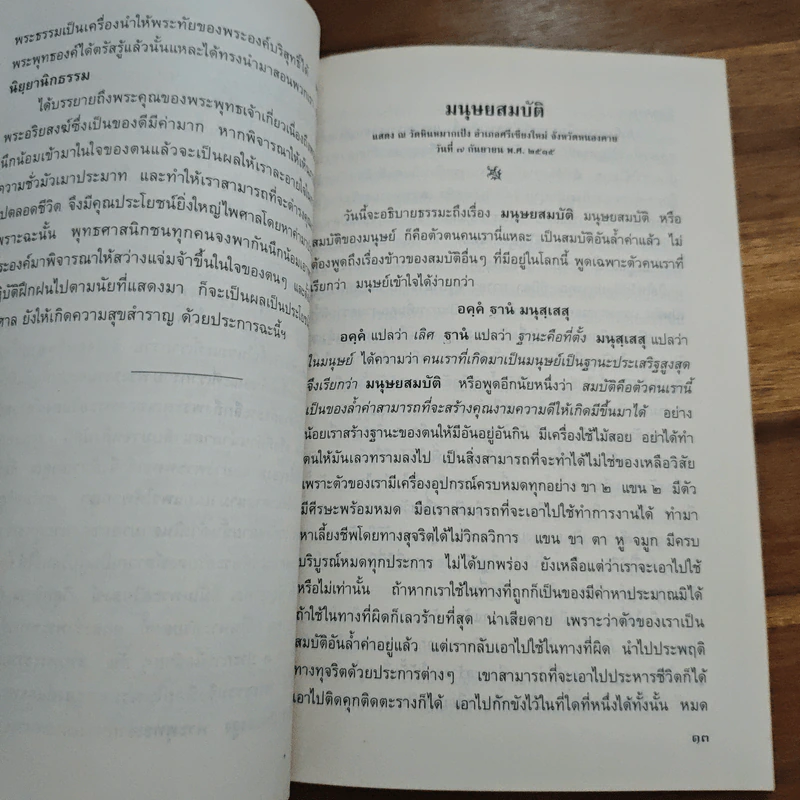 พระธรรมเป็นเครื่องนำให้พระทัยของพระองค์บริสุทธิ์ได้
พระพุทธองค์ได้ตรัสรู้แล้วนั้นแหละได้ทรงนำมาสอนพวกเรา
นิยฺยานิกธรรม
ได้บรรยายถึงพระคุณของพระพุทธเจ้าเกี่ยวเนื่องถึง
พระอริยสงฆ์ซึ่งเป็นของดีมีค่ามาก หากพิจารณาให้
นึกน้อมเข้ามาในใจของตนแล้วจะเป็นผลให้เราละอาย
ความชั่วมัวเมาประมาท และทำให้เราสามารถที่จะดำรง
ปตลอดชีวิต จึงมีคุณประโยชน์ยิ่งใหญ่ไพศาลโดยหาค่า
พราะฉะนั้น พุทธศาสนิกชนทุกคนจงพากันนึกน้อม
ะองค์มาพิจารณาให้สว่างแจ่มจ้าขึ้นในใจของตนๆ
ฏิบัติฝึกฝนไปตามนัยที่แสดงมา ก็จะเป็นผลเป็นประโย
าล ยังให้เกิดความสุขสำราญ ด้วยประการฉะนี้ฯ
มนุษยสมบัติ
แสดง ณ วัดหินหมากเป้ง อำเภอศรีเชียงใหม่ จังหวัดหนองคาย
วันที่ ๗ กันยายน พ.ศ. ๒๕๑๕
วันนี้จะอธิบายธรรมะถึงเรื่อง มนุษยสมบัติ มนุษยสมบัติ หรือ
สมบัติของมนุษย์ ก็คือตัวตนคนเรานี่แหละ เป็นสมบัติอันล้ำค่าแล้ว ไม่
ต้องพูดถึงเรื่องข้าวของสมบัติอื่นๆ ที่มีอยู่ในโลกนี้ พูดเฉพาะตัวคนเราที่
เรียกว่า มนุษย์เข้าใจได้ง่ายกว่า
อคฺคํ ฐานํ มนุสฺเสสุ
อคฺคํ แปลว่า เลิศ ฐานํ แปลว่า ฐานะคือที่ตั้ง มนุสฺเสสุ แปลว่า
ในมนุษย์ ได้ความว่า คนเราที่เกิดมาเป็นมนุษย์เป็นฐานะประเสริฐสูงสุด
จึงเรียกว่า มนุษยสมบัติ หรือพูดอีกนัยหนึ่งว่า สมบัติคือตัวคนเรานี้
เป็นของล้ำค่าสามารถที่จะสร้างคุณงามความดีให้เกิดมีขึ้นมาได้ อย่าง
น้อยเราสร้างฐานะของตนให้มีอันอยู่อันกิน มีเครื่องใช้ไม้สอย อย่าได้ทำ
ตนให้มันเลวทรามลงไป เป็นสิ่งสามารถที่จะทำได้ไม่ใช่ของเหลือวิสัย
เพราะตัวของเรามีเครื่องอุปกรณ์ครบหมดทุกอย่าง ขา ๒ แขน ๒ มีตัว
มีศีรษะพร้อมหมด มือเราสามารถที่จะเอาไปใช้ทำการงานได้ ทำมา
หาเลี้ยงชีพโดยทางสุจริตได้ไม่วิกลวิการ แขน ขา ตา หู จมูก มีครบ
บริบูรณ์หมดทุกประการ ไม่ได้บกพร่อง ยังเหลือแต่ว่าเราจะเอาไปใช้
หรือไม่เท่านั้น ถ้าหากเราใช้ในทางที่ถูกก็เป็นของมีค่าหาประมาณมิได้
ถ้าใช้ในทางที่ผิดก็เลวร้ายที่สุด น่าเสียดาย เพราะว่าตัวของเราเป็น
สมบัติอันล้ำค่าอยู่แล้ว แต่เรากลับเอาไปใช้ในทางที่ผิด นำไปประพฤติ
ทางทุจริตด้วยประการต่างๆ เขาสามารถที่จะเอาไปประหารชีวิตก็ได้
เอาไปติดคุกติดตะรางก็ได้ เอาไปกักขังไว้ในที่ใดที่หนึ่งได้ทั้งนั้น หมด
๑๓